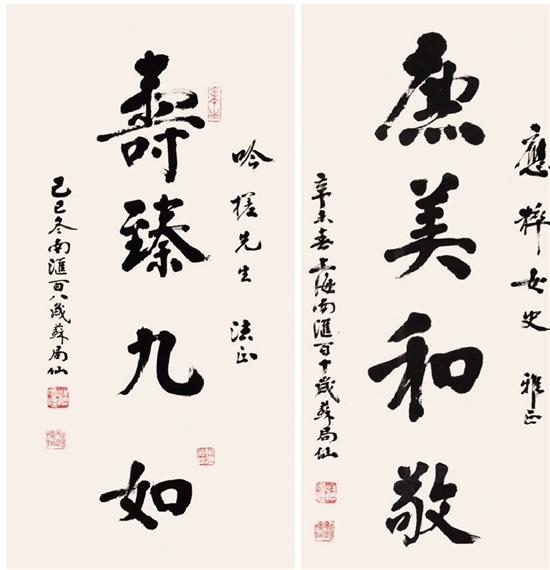 應梓女史 雅正
廉美和敬
辛未春上海南匯百十歲蘇局仙
吟槎先生 法正
壽臻九如
己巳冬南匯百八歲蘇局仙